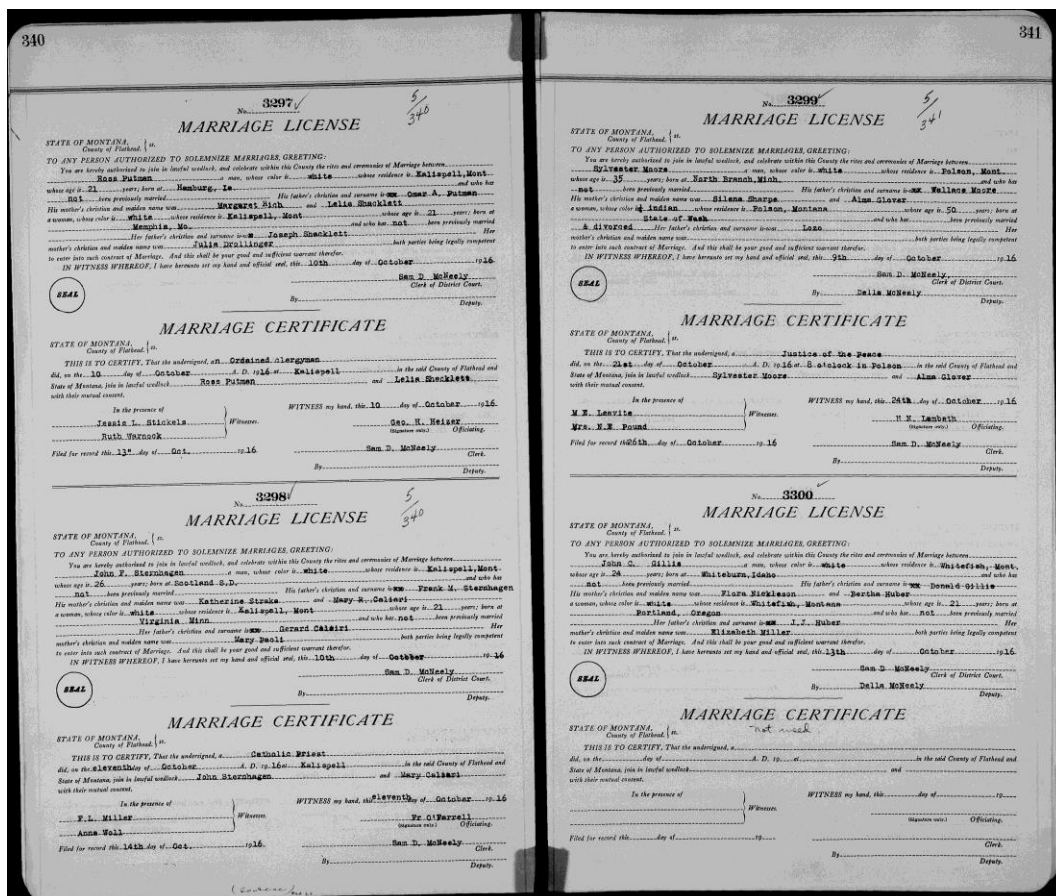 340
No. 3297 ✓
5/340
MARRIAGE LICENSE
STATE OF MONTANA, County of Flathead. } ss.
TO ANY PERSON AUTHORIZED TO SOLEMNIZE MARRIAGES, GREETING:
You are hereby authorized to join in lawful wedlock, and celebrate within this County the rites and ceremonies of Marriage between
Ross Putman a man, whose color is white whose residence is Kalispell, Mont
whose age is 21 years; born at Hamburg, Ia. and who has
not been previously married His father's christian and surname is Omar A. Putman
His mother's christian and maiden name was Margaret Rich and Lelia Shacklett
a woman, whose color is white whose residence is Kalispell, Mont whose age is 21 years; born at
Memphis, Mo. and who has not been previously married
Her father's christian and surname is Joseph Shacklett Her
mother's christian and maiden name was Julia Drollinger both parties being legally competent
to enter into such contract of Marriage. And this shall be your good and sufficient warrant therefor.
IN WITNESS WHEREOF, I have hereunto set my hand and official seal, this 10th day of October 1916
Sam D. McNeely
Clerk of District Court.
SEAL
By
Deputy.
MARRIAGE CERTIFICATE
STATE OF MONTANA, County of Flathead. } ss.
THIS IS TO CERTIFY, That the undersigned, an Ordained clergyman
did, on the 10 day of October A. D. 1916 at Kalispell in the said County of Flathead and
State of Montana, join in lawful wedlock Ross Putman and Lelia Shacklett
with their mutual consent.
In the presence of WITNESS my hand, this 10 day of October 1916
Jessie L. Stickels
Witnesses. Geo. H. Heizer
Ruth Warnock (Signature only.) Officiating.
Filed for record this 13" day of Oct. 1916 Sam D. McNeely
Clerk.
By
Deputy.
No. 3298 ✓
5/340
MARRIAGE LICENSE
STATE OF MONTANA, County of Flathead. } ss.
TO ANY PERSON AUTHORIZED TO SOLEMNIZE MARRIAGES, GREETING:
You are hereby authorized to join in lawful wedlock, and celebrate within this County the rites and ceremonies of Marriage between
John F. Sternhagen a man, whose color is white whose residence is Kalispell, Mont.
whose age is 26 years; born at Scotland S.D. and who has
not been previously married His father's christian and surname is Frank M. Sternhagen
His mother's christian and maiden name was Katherine Strake and Mary R. Calieri
a woman, whose color is white whose residence is Kalispell, Mont whose age is 21 years; born at
Virginia Minn and who has not been previously married
Her father's christian and surname is Gerard Calsiri Her
mother's christian and maiden name was Mary Paoli both parties being legally competent
to enter into such contract of Marriage. And this shall be your good and sufficient warrant therefor.
IN WITNESS WHEREOF, I have hereunto set my hand and official seal, this 10th day of October 1916
Sam D. McNeely
Clerk of District Court.
SEAL
By
Deputy.
MARRIAGE CERTIFICATE
STATE OF MONTANA, County of Flathead. } ss.
THIS IS TO CERTIFY, That the undersigned, a Catholic Priest
did, on the eleventh day of October A. D. 1916 at Kalispell in the said County of Flathead and
State of Montana, join in lawful wedlock John Sternhagen and Mary Calsari
with their mutual consent.
In the presence of WITNESS my hand, this eleventh day of October 1916
F.L. Miller
Witnesses. Fr O'Farrell
Anna Woll (Signature only.) Officiating.
Filed for record this 14th day of Oct. 1916. Sam D. McNeely
Clerk.
By
Deputy.
341
No. 3299 ✓
5/341
MARRIAGE LICENSE
STATE OF MONTANA, County of Flathead. } ss.
TO ANY PERSON AUTHORIZED TO SOLEMNIZE MARRIAGES, GREETING:
You are hereby authorized to join in lawful wedlock, and celebrate within this County the rites and ceremonies of Marriage between
Sylvester Moore a man, whose color is white whose residence is Polson, Mont.
whose age is 35 years; born at North Branch, Mich. and who has
not been previously married His father's christian and surname is Wallace Moore
His mother's christian and maiden name was Silena Sharpe and Alma Glover
a woman, whose color indian whose residence is Polson, Montana whose age is 50 years; born at
State of Wash and who has been previously married
& divorced Her father's christian and surname is Lozo Her
mother's christian and maiden name was both parties being legally competent
to enter into such contract of Marriage. And this shall be your good and sufficient warrant therefor.
IN WITNESS WHEREOF, I have hereunto set my hand and official seal, this 9th day of October 1916
Sam D. McNeely,
Clerk of District Court.
SEAL
By Della McNeely
Deputy.
MARRIAGE CERTIFICATE
STATE OF MONTANA, County of Flathead. } ss.
THIS IS TO CERTIFY, That the undersigned, a Justice of the Peace
did, on the 21st day of October A. D. 1916 at 8 o'clock in Polson in the said County of Flathead and
State of Montana, join in lawful wedlock Sylvester Moore and Alma Glover
with their mutual consent.
In the presence of WITNESS my hand, this 24th day of October 1916
M E. Leavite
Witnesses. H N. Lambeth
Mrs. N.E Pound (Signature only.) Officiating.
Filed for record this 26th day of October 1916 Sam D. McNeely
Clerk.
By
Deputy.
No. 3300 ✓
MARRIAGE LICENSE
STATE OF MONTANA, County of Flathead. } ss.
TO ANY PERSON AUTHORIZED TO SOLEMNIZE MARRIAGES, GREETING:
You are hereby authorized to join in lawful wedlock, and celebrate within this County the rites and ceremonies of Marriage between
John C. Gillis a man, whose color is white whose residence is Whitefish, Mont.
whose age is 24 years; born at Whiteburn, Idaho and who has
not been previously married His father's christian and surname is Donald Gillis
His mother's christian and maiden name was Flora Nickleson and Bertha Huber
a woman, whose color is white whose residence is Whitefish, Montana whose age is 21 years; born at
Portland, Oregon and who has not been previously married
Her father's christian and surname is J.J. Huber Her
mother's christian and maiden name was Elizabeth Miller both parties being legally competent
to enter into such contract of Marriage. And this shall be your good and sufficient warrant therefor.
IN WITNESS WHEREOF, I have hereunto set my hand and official seal, this 13th day of October 1916.
Sam D McNeely
Clerk of District Court.
SEAL
By Della McNeely
Deputy.
MARRIAGE CERTIFICATE
not used
STATE OF MONTANA, County of Flathead. } ss.
THIS IS TO CERTIFY, That the undersigned, a
did, on the day of A. D. 19 at in the said County of Flathead and
State of Montana, join in lawful wedlock and
with their mutual consent.
In the presence of WITNESS my hand, this day of 19
Witnesses.
(Signature only.) Officiating.
Filed for record this day of 19
Clerk.
By
Deputy.